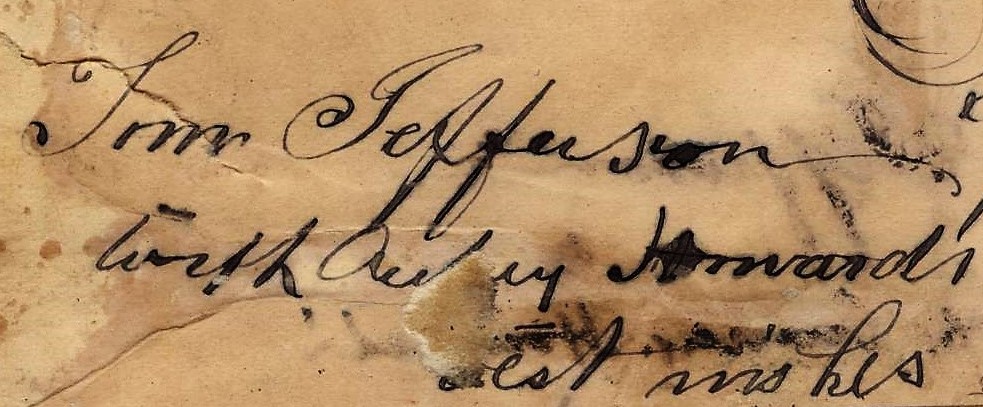 Tom Jefferson
with Howard's
est wishes